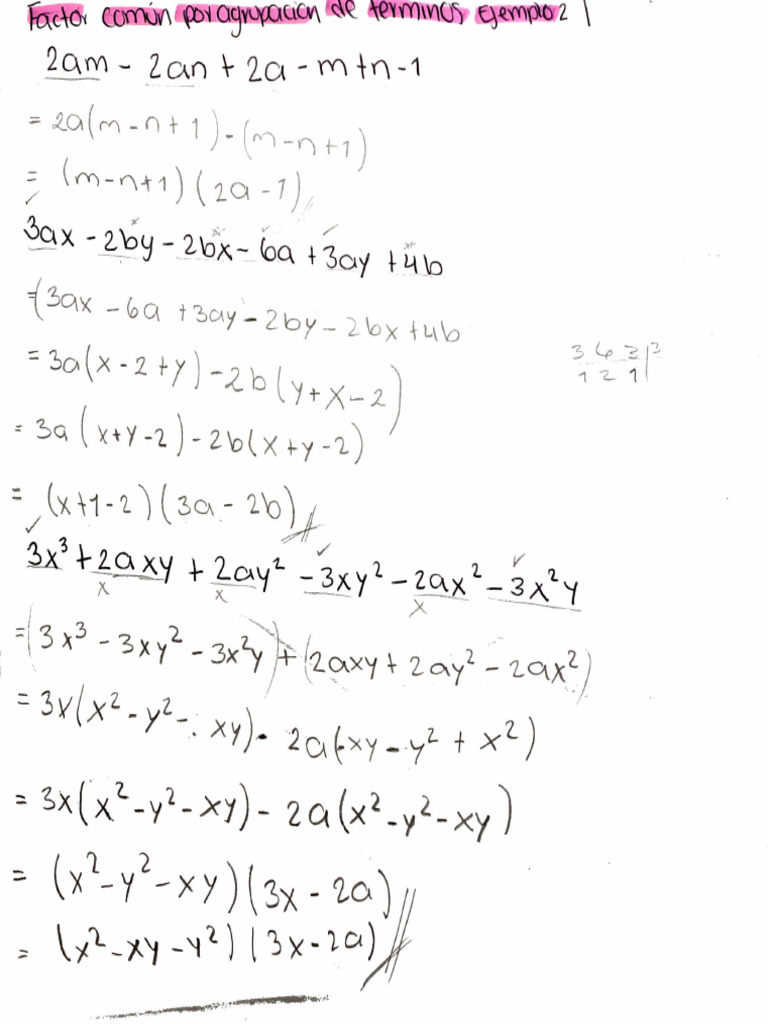 Factor común por agrupación de terminos Ejemplo 2
2am - 2an + 2a - m + n - 1
= 2a(m - n + 1) - (m - n + 1)
= (m - n + 1)(2a - 1)
3ax - 2by - 2bx - 6a + 3ay + 4b
= (3ax - 6a + 3ay - 2by - 2bx + 4b
= 3a(x - 2 + y) - 2b(y + x - 2)
3 6 3 | 3
1 2 1 |
= 3a(x + y - 2) - 2b(x + y - 2)
= (x + 1 - 2)(3a - 2b)
3x³ + 2axy + 2ay² - 3xy² - 2ax² - 3x²y
= (3x³ - 3xy² - 3x²y) + (2axy + 2ay² - 2ax²)
= 3x(x² - y² - xy) - 2a(-xy - y² + x²)
= 3x(x² - y² - xy) - 2a(x² - y² - xy)
= (x² - y² - xy)(3x - 2a)
= (x² - xy - y²)(3x - 2a)